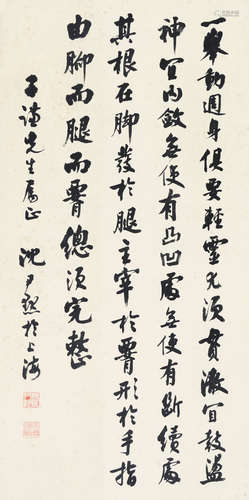 一舉動週身俱要輕靈尤須貫澈宜鼓盪
神宜內斂無使有凸凹處無使有斷續處
其根在腳發於腿主宰於腰形於手指
由腳而腿而腰總須完整
子謹先生屬正
沈尹默於上海